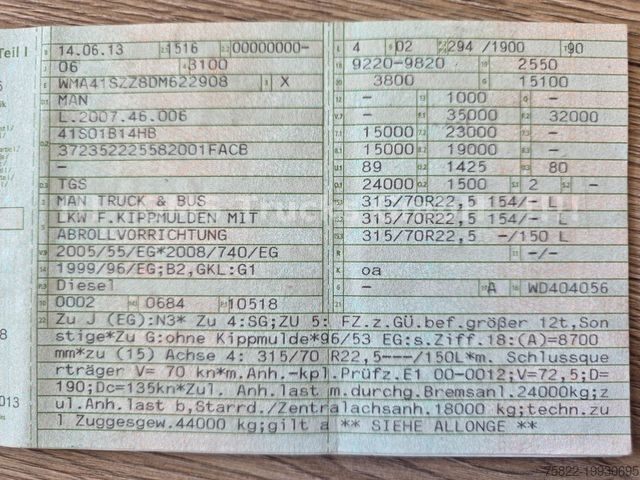 Teil I
B 14.06.13 2.1 1516 2.2 00000000-
J 06 4 8100
E WMA41SZZ8DM622908 3 X
D.1 MAN
L.2007.46.006
41S01B14HB
D.2 372352225582001FACB
-
D.3 TGS
2 MAN TRUCK & BUS
5 LKW F.KIPPMULDEN MIT
ABROLLVORRICHTUNG
V.9 2005/55/EG*2008/740/EG
14 1999/96/EG;B2,GKL:G1
P.3 Diesel
10 0002 14.1 0684 P.1 10518
L 4 9 02 P.2/P.4 294 /1900 T 90
18 9220-9820 19 2550
20 3800 G 15100
12 - 13 1000 Q -
V.7 - F.1 35000 F.2 32000
7.1 15000 7.2 23000 7.3 -
8.1 15000 8.2 19000 8.3 -
U.1 89 U.2 1425 U.3 80
O.1 24000 O.2 1500 S.1 2 S.2 -
15.1 315/70R22,5 154/- L
15.2 315/70R22,5 154/- L
15.3 315/70R22,5 -/150 L
R 11 -/-
K oa
6 - 17 A 16 WD404056
21
22 Zu J (EG):N3* Zu 4:SG;ZU 5: FZ.z.GÜ.bef.größer 12t,Son
stige*Zu G:ohne Kippmulde*96/53 EG:s.Ziff.18:(A)=8700
mm*zu (15) Achse 4: 315/70 R22,5---/150L*m. Schlussque
rträger V= 70 kn*m.Anh.-kpl.Prüfz.E1 00-0012;V=72,5;D=
190;Dc=135kn*Zul. Anh.last m.durchg.Bremsanl.24000kg;z
ul.Anh.last b,Starrd./Zentralachsanh.18000 kg;techn.zu
l Zuggesgew.44000 kg;gilt a ** SIEHE ALLONGE **
013
75822-19930695